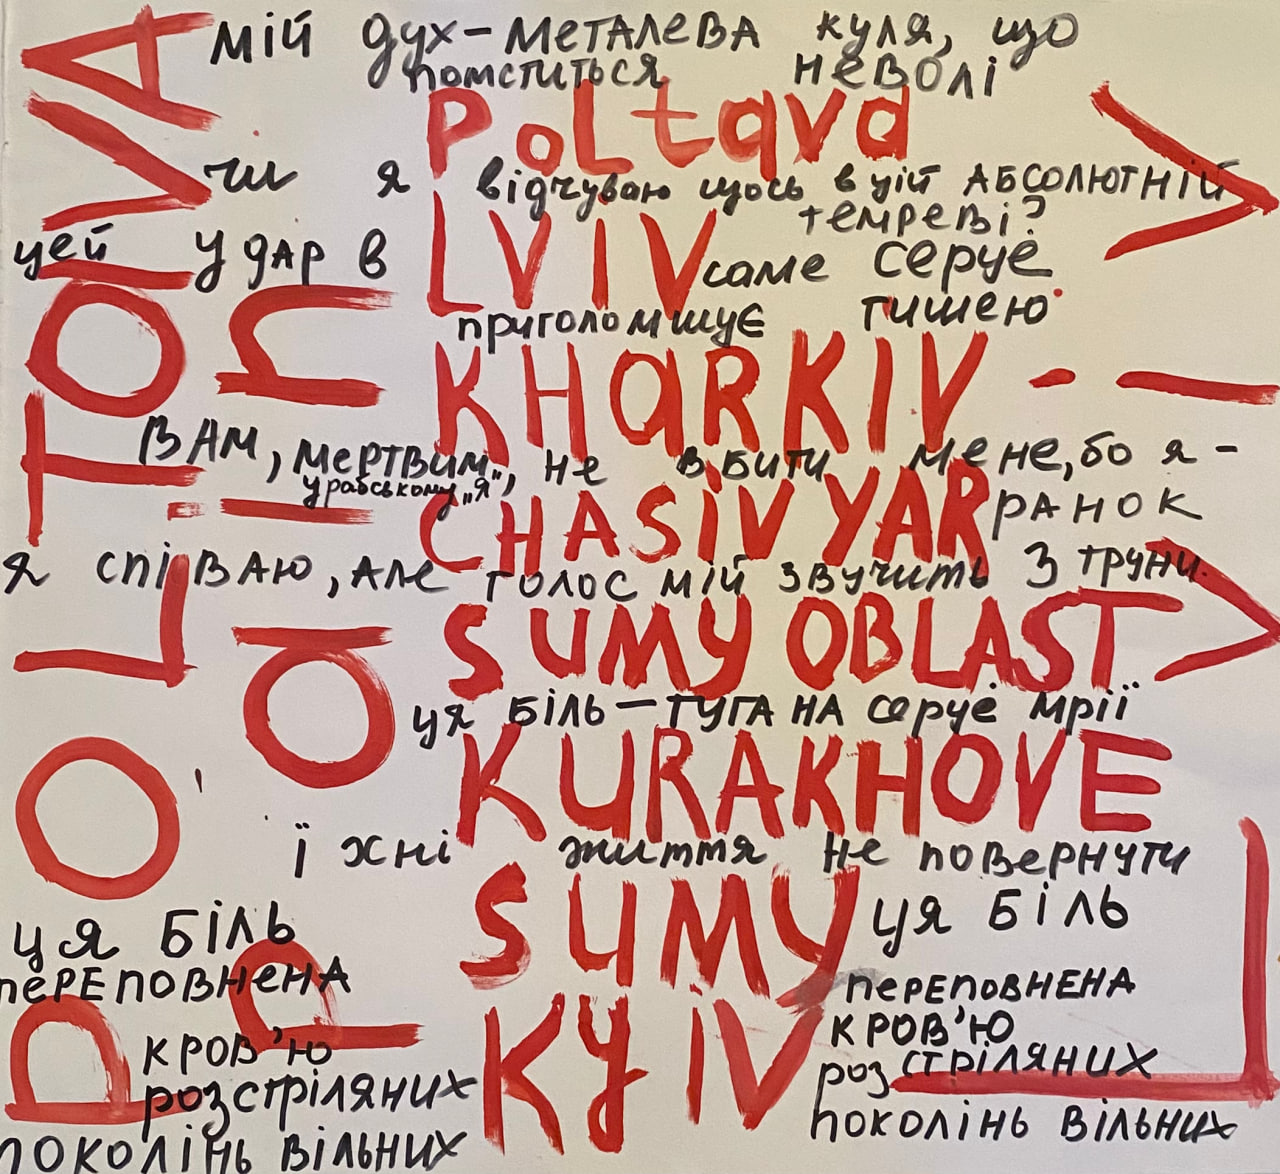 мій дух – металева куля, що
помститься неволі
Poltava
чи я відчуваю щось в цій АБСОЛЮТНІЙ
темреві?
цей удар в
LVIV
саме серце
приголомшує тишею
KHARKIV
ВАМ, мертвим, не вбити мене, бо я –
у рабському „я“,
CHASIV YAR
РАНОК
я співаю, але голос мій звучить з труни
SUMY OBLAST
ця біль – туга на серце мрії
KURAKHOVE
їхні життя не повернути
SUMY
ця біль
переповнена
кров'ю
розстріляних
поколінь вільних
KYIV
ця біль
переповнена
кров'ю
розстріляних
поколінь вільних
POLTOVA
pain